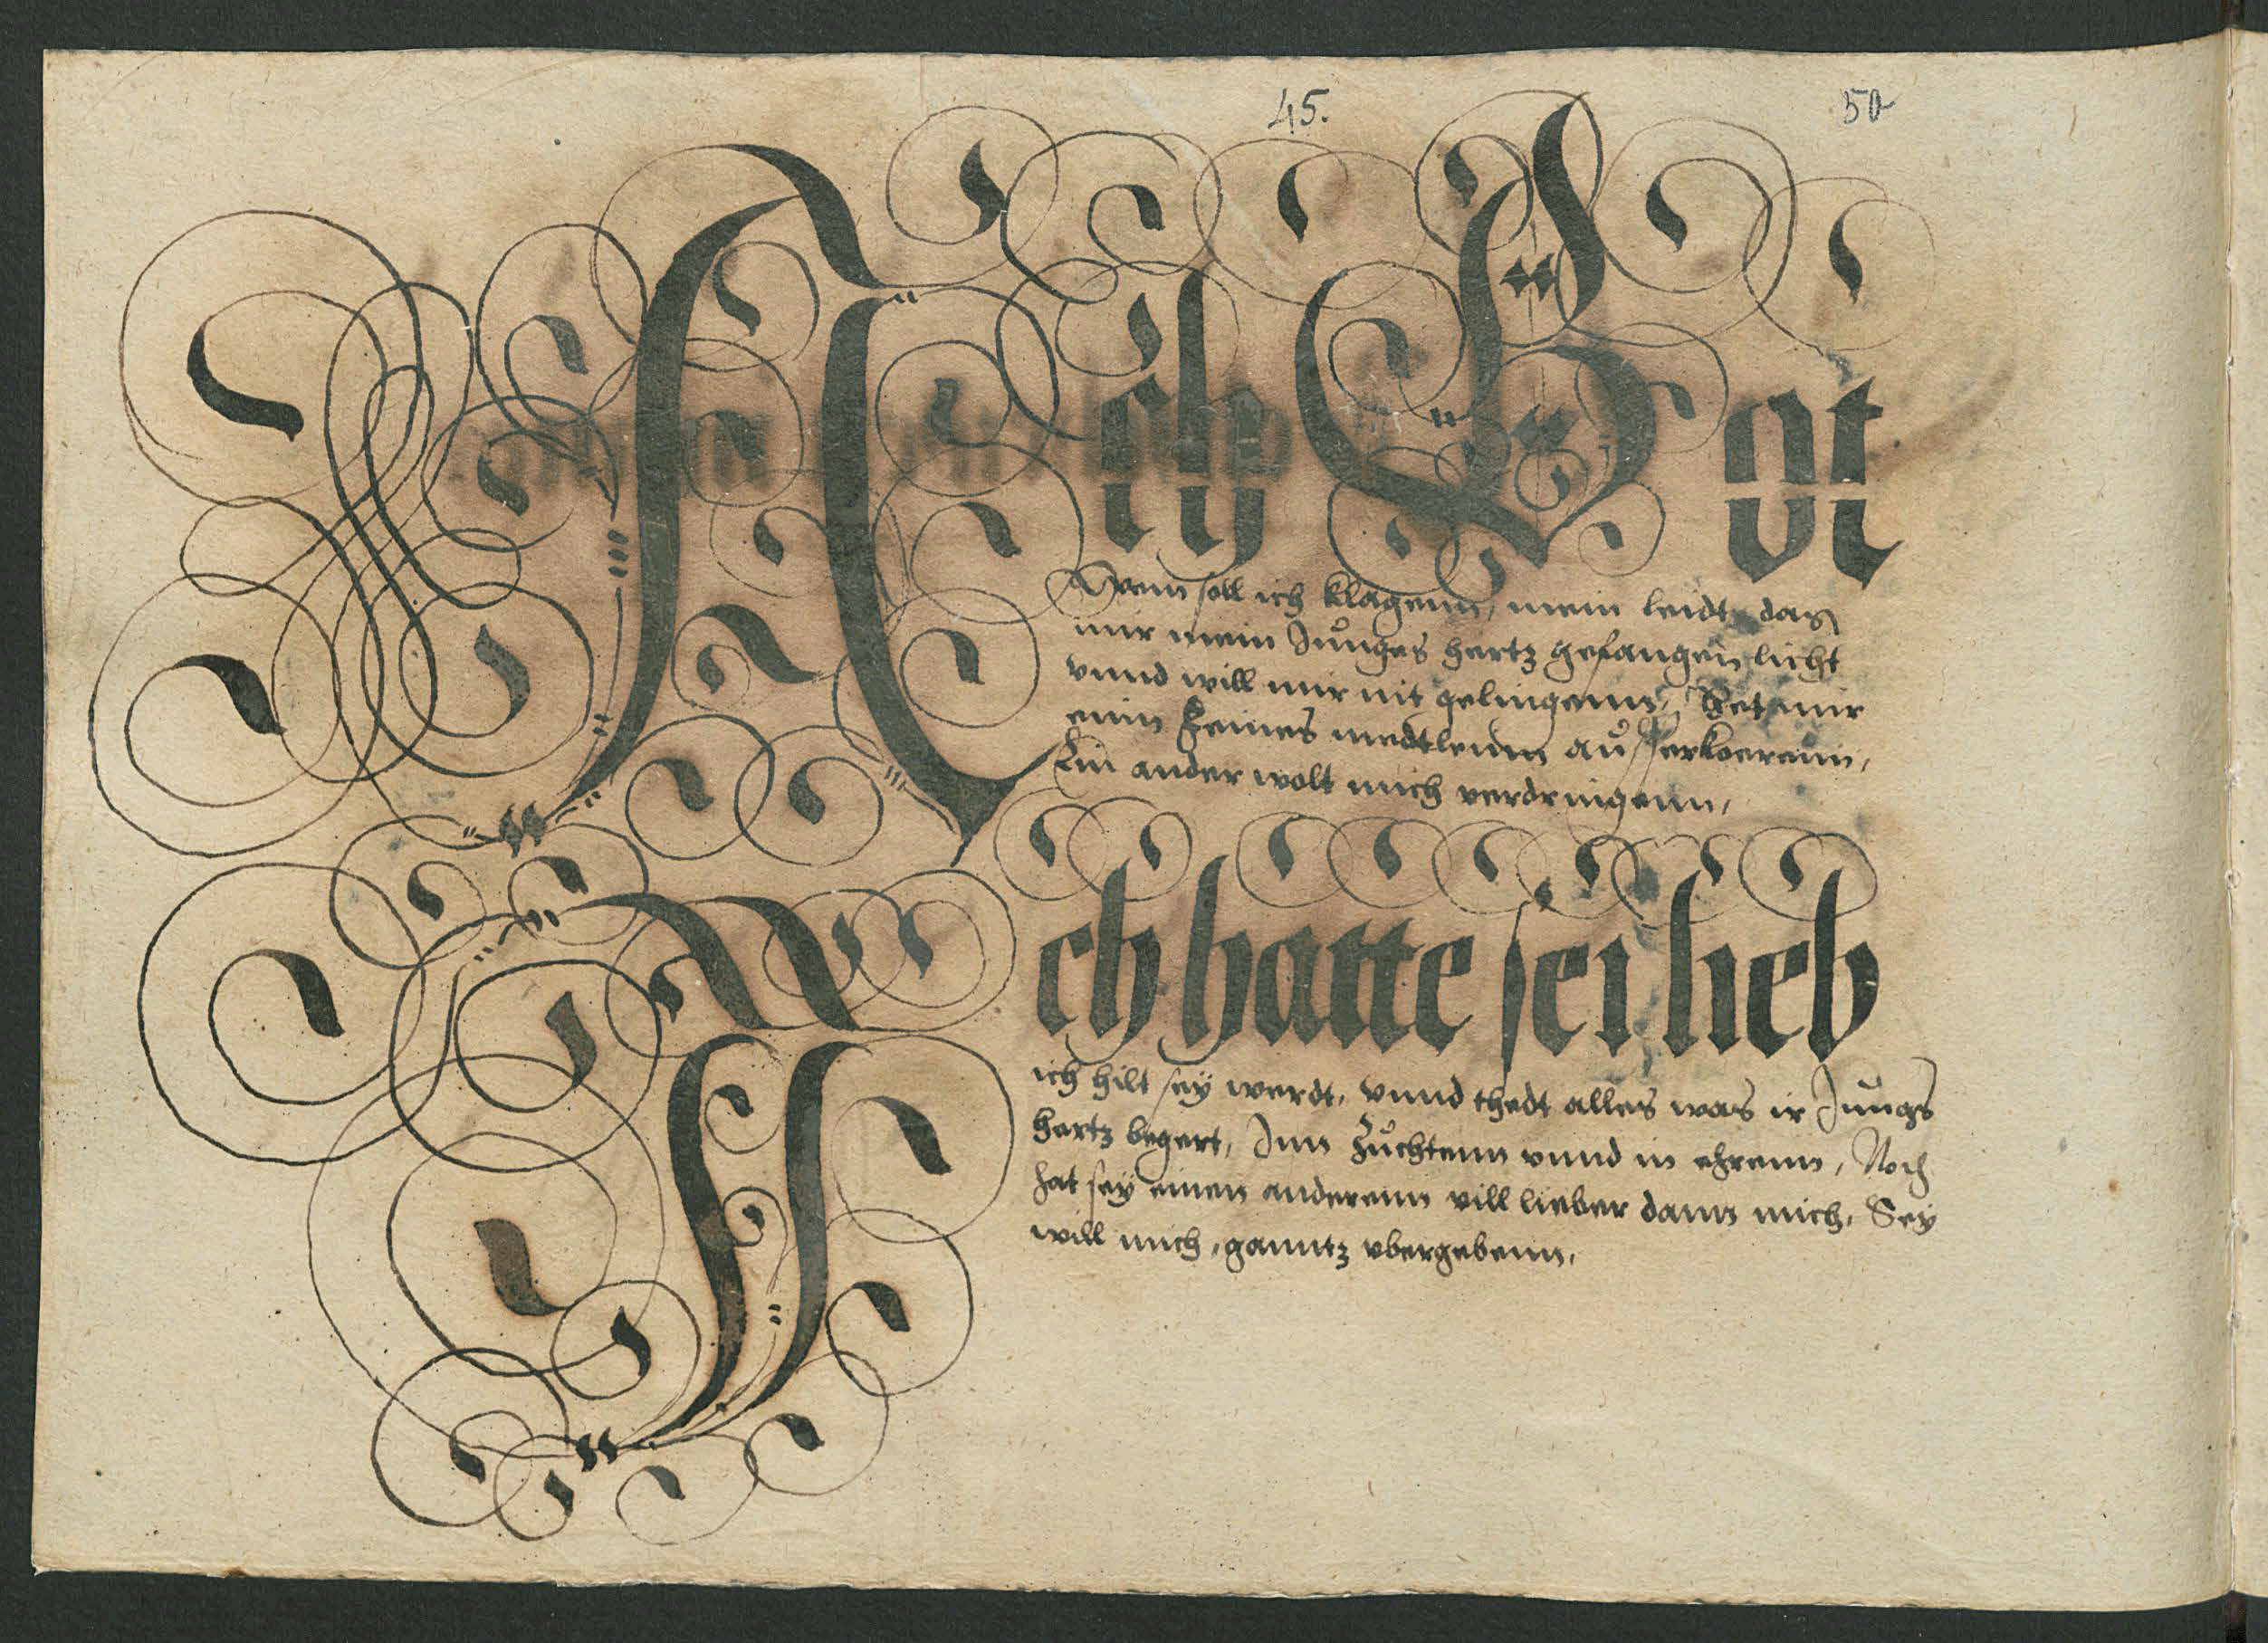 45.
50
Ach Got
Wem soll ich klagenn, mein leidt das
mir mein Jůnges hertz gefangen licht
vnnd will mir nit gelingenn, Het mir
einn feines medtleinn aůsserkoerenn,
Ein ander wolt mich verdringenn,
Ich hatte sei lieb
ich hilt sey werdt, vnnd thedt alles was ir Jůngs
hertz begert, Jnn Zůchtenn vnnd in ehrenn, Noch
hat sey einen anderenn vill lieber dann mich, Sey
will mich, ganntz vbergebenn,